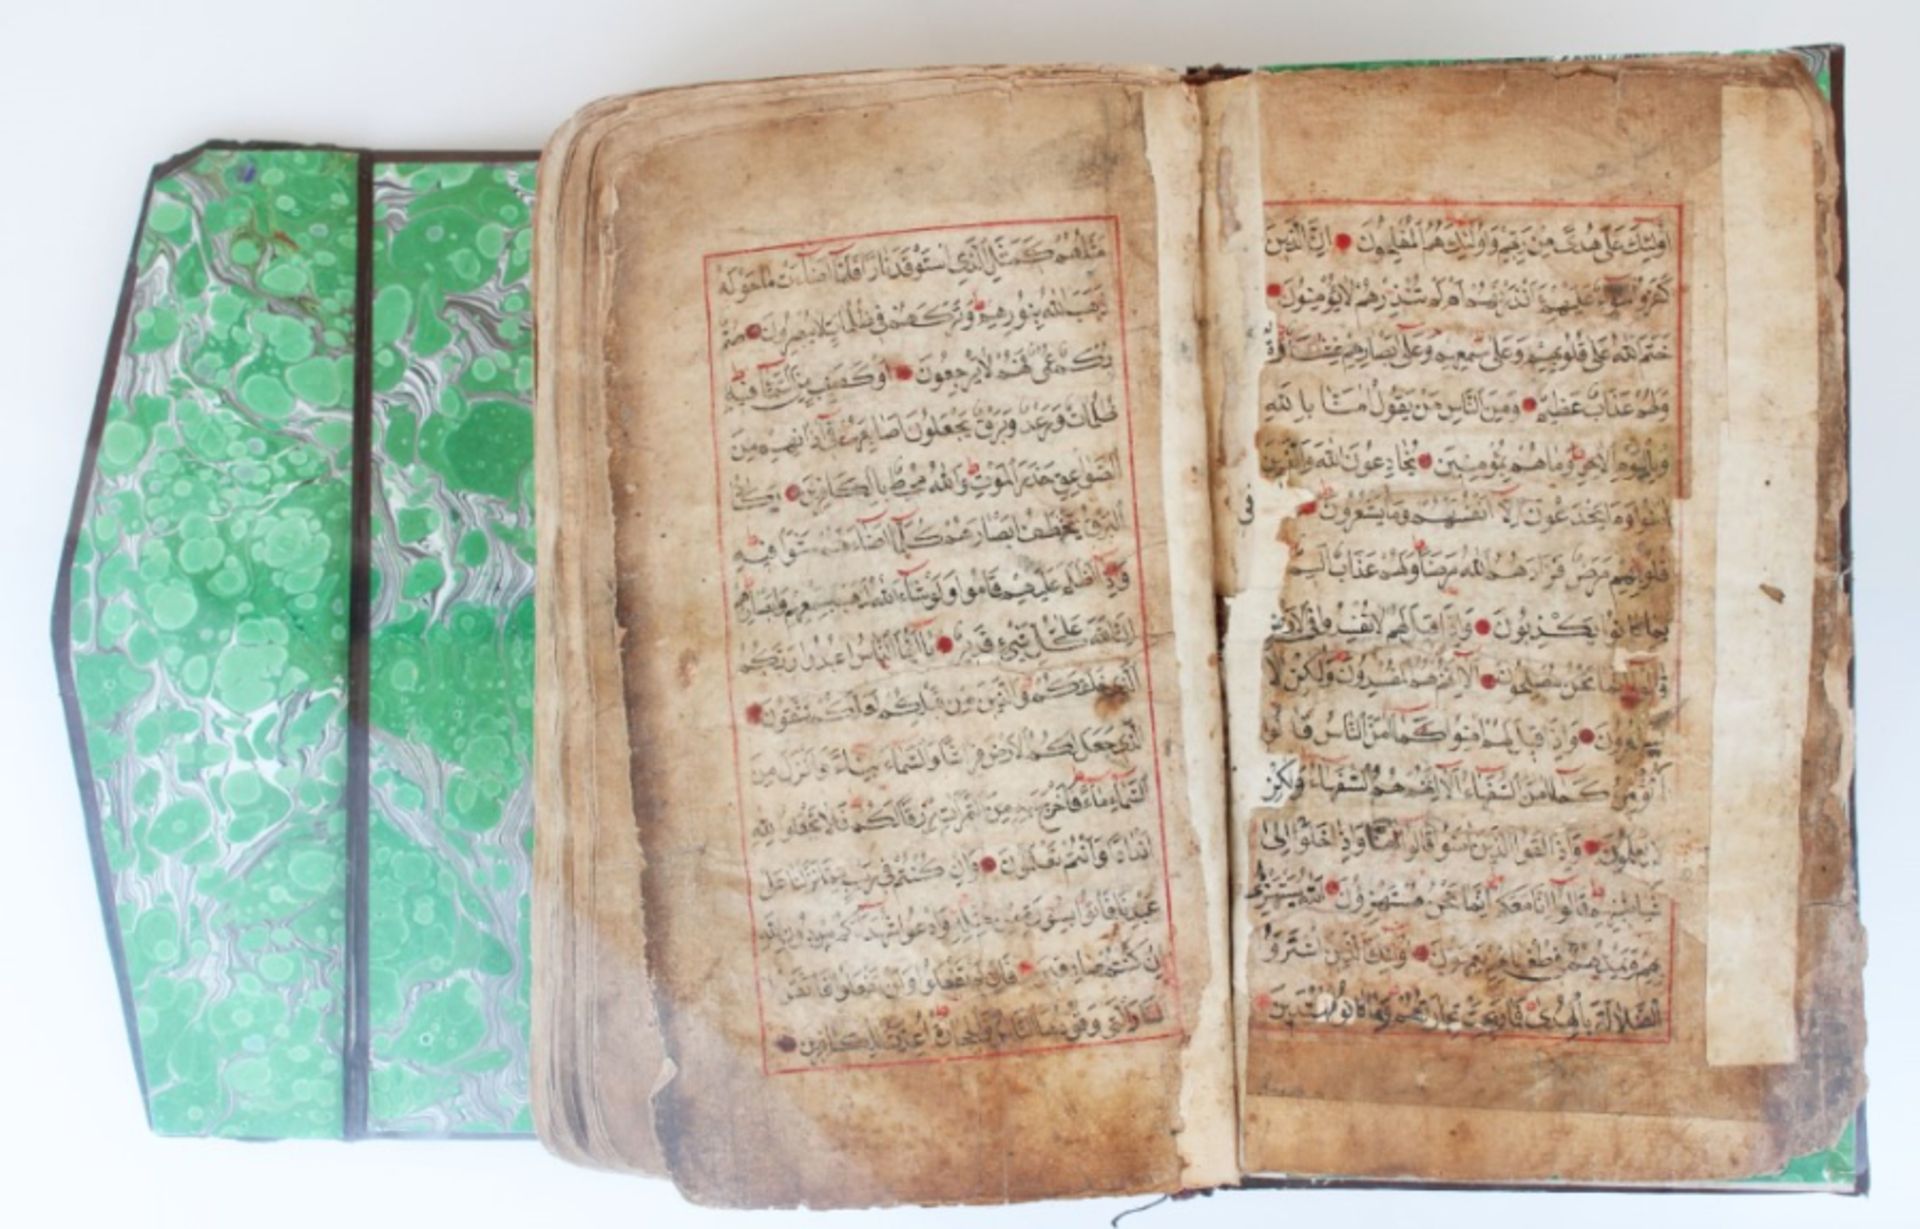 أولئك على هدى من ربهم وأولئك هم المفلحون ان الذين
كفروا سواء عليهم ءانذرتهم أم لم تنذرهم لا يؤمنون
ختم الله على قلوبهم وعلى سمعهم وعلى أبصارهم غشاوة
ولهم عذاب عظيم ومن الناس من يقول آمنا بالله
وباليوم الآخر وما هم بمؤمنين يخادعون الله والذين
آمنوا وما يخدعون إلا أنفسهم وما يشعرون فى
قلوبهم مرض فزادهم الله مرضا ولهم عذاب أليم
بما كانوا يكذبون وإذا قيل لهم لا تفسدوا في الأرض
قالوا إنما نحن مصلحون ألا إنهم هم المفسدون ولكن لا
يشعرون وإذا قيل لهم آمنوا كما آمن الناس قالوا
أنؤمن كما آمن السفهاء ألا إنهم هم السفهاء ولكن
لا يعلمون وإذا لقوا الذين آمنوا قالوا آمنا وإذا خلوا إلى
شياطينهم قالوا إنا معكم إنما نحن مستهزؤن الله يستهزئ
بهم ويمدهم في طغيانهم يعمهون أولئك الذين اشتروا
الضلالة بالهدى فما ربحت تجارتهم وما كانوا مهتدين
مثلهم كمثل الذي استوقد نارا فلما أضاءت ما حوله
ذهب الله بنورهم وتركهم في ظلمات لا يبصرون صم
بكم عمي فهم لا يرجعون أو كصيب من السماء فيه
ظلمات ورعد وبرق يجعلون أصابعهم في آذانهم من
الصواعق حذر الموت والله محيط بالكافرين يكاد
البرق يخطف أبصارهم كلما أضاء لهم مشوا فيه
وإذا أظلم عليهم قاموا ولو شاء الله لذهب بسمعهم وأبصارهم
إن الله على كل شيء قدير يا أيها الناس اعبدوا ربكم
الذي خلقكم والذين من قبلكم لعلكم تتقون
الذي جعل لكم الأرض فراشا والسماء بناء وأنزل من
السماء ماء فأخرج به من الثمرات رزقا لكم فلا تجعلوا لله
أندادا وأنتم تعلمون وإن كنتم في ريب مما نزلنا على
عبدنا فأتوا بسورة من مثله وادعوا شهداءكم من دون الله
إن كنتم صادقين فإن لم تفعلوا ولن تفعلوا فاتقوا
النار التي وقودها الناس والحجارة أعدت للكافرين